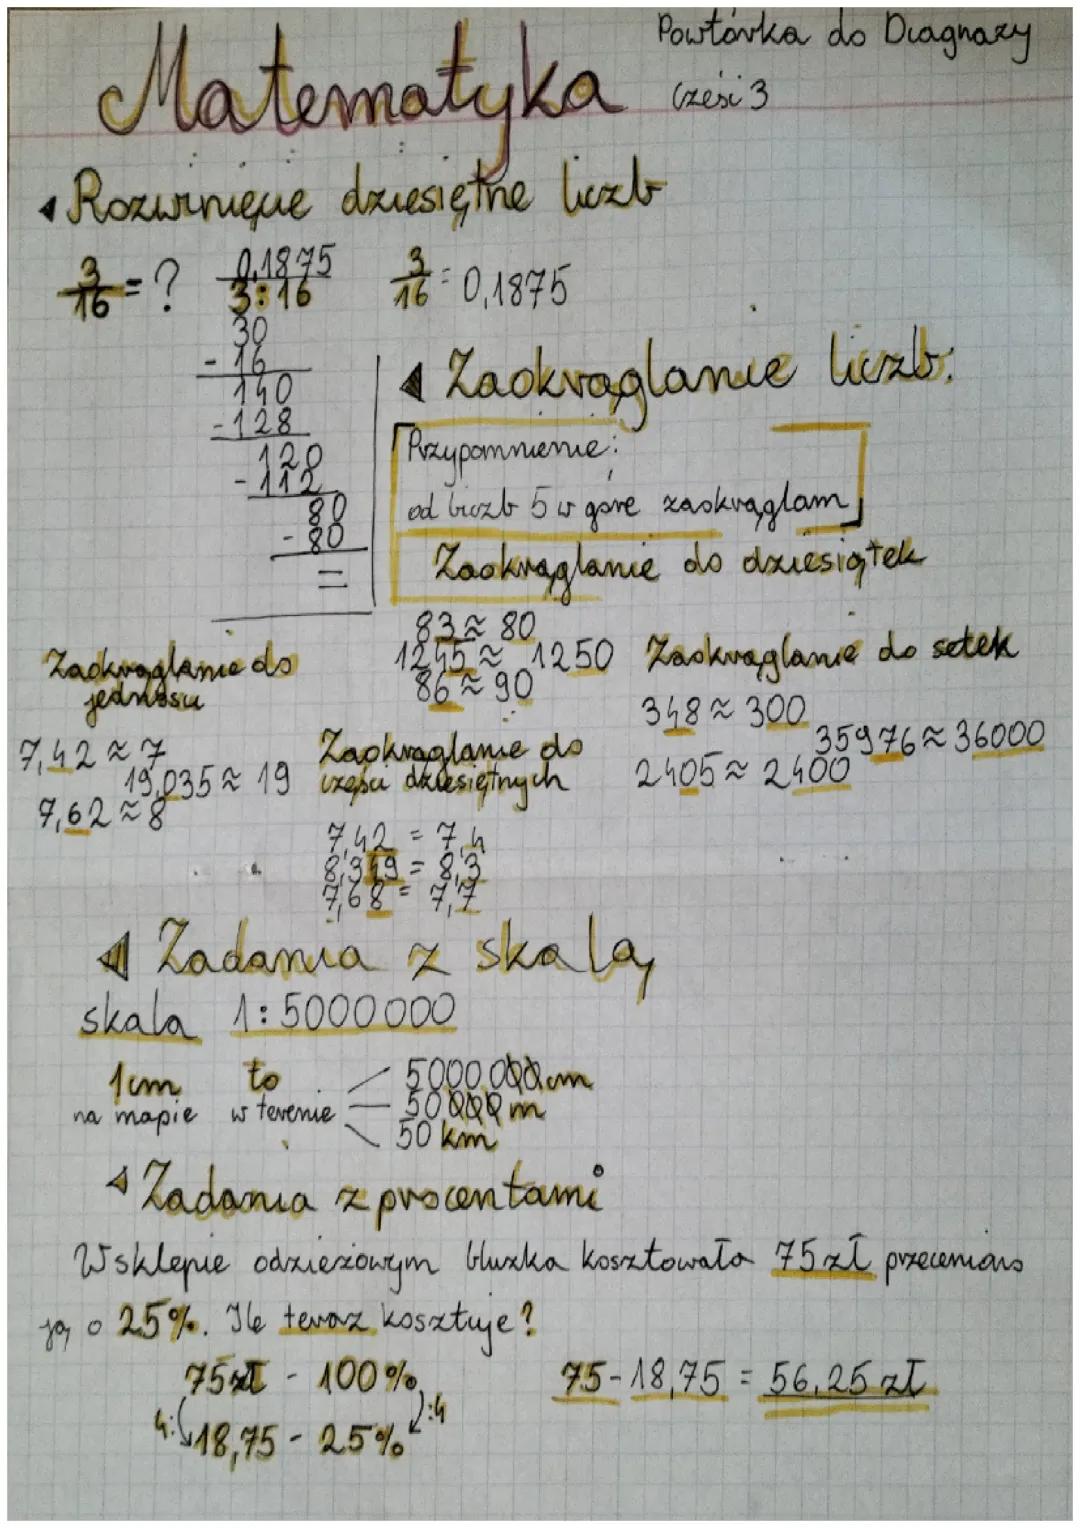 Powtórka do Diagnozy
Matematyka części 3
Rozwinięcie dziesiętne liczb
3/16 = ? 0,1875 3/16 = 0,1875
3:16
30
- 16
140
-128
120
-112
80
- 80
=
Zaokrąglanie liczb:
Przypomnienie:
od liczb 5 w góre zaokrąglamy
Zaokrąglanie do dziesiątek
83 ≈ 80
1245 ≈ 1250
86 ≈ 90
Zaokrąglanie do setek
348 ≈ 300
35976 ≈ 36000
2405 ≈ 2400
Zaokrąglanie do
jedności
7,42 ≈ 7
19,035 ≈ 19
7,62 ≈ 8
Zaokrąglanie do
części dziesiętnych
7,42 = 7,4
8,349 = 8,3
7,68 = 7,7
Zadania z skalą
skala 1:5000000
1cm to 5000000cm
na mapie w terenie 50000m
50 km
Zadania z procentami
W sklepie odzieżowym bluzka kosztowała 75zł przeceniono
ją o 25%. Ile teraz kosztuje?
75zł - 100% 75-18,75 = 56,25 zł
4: :4
18,75 - 25%